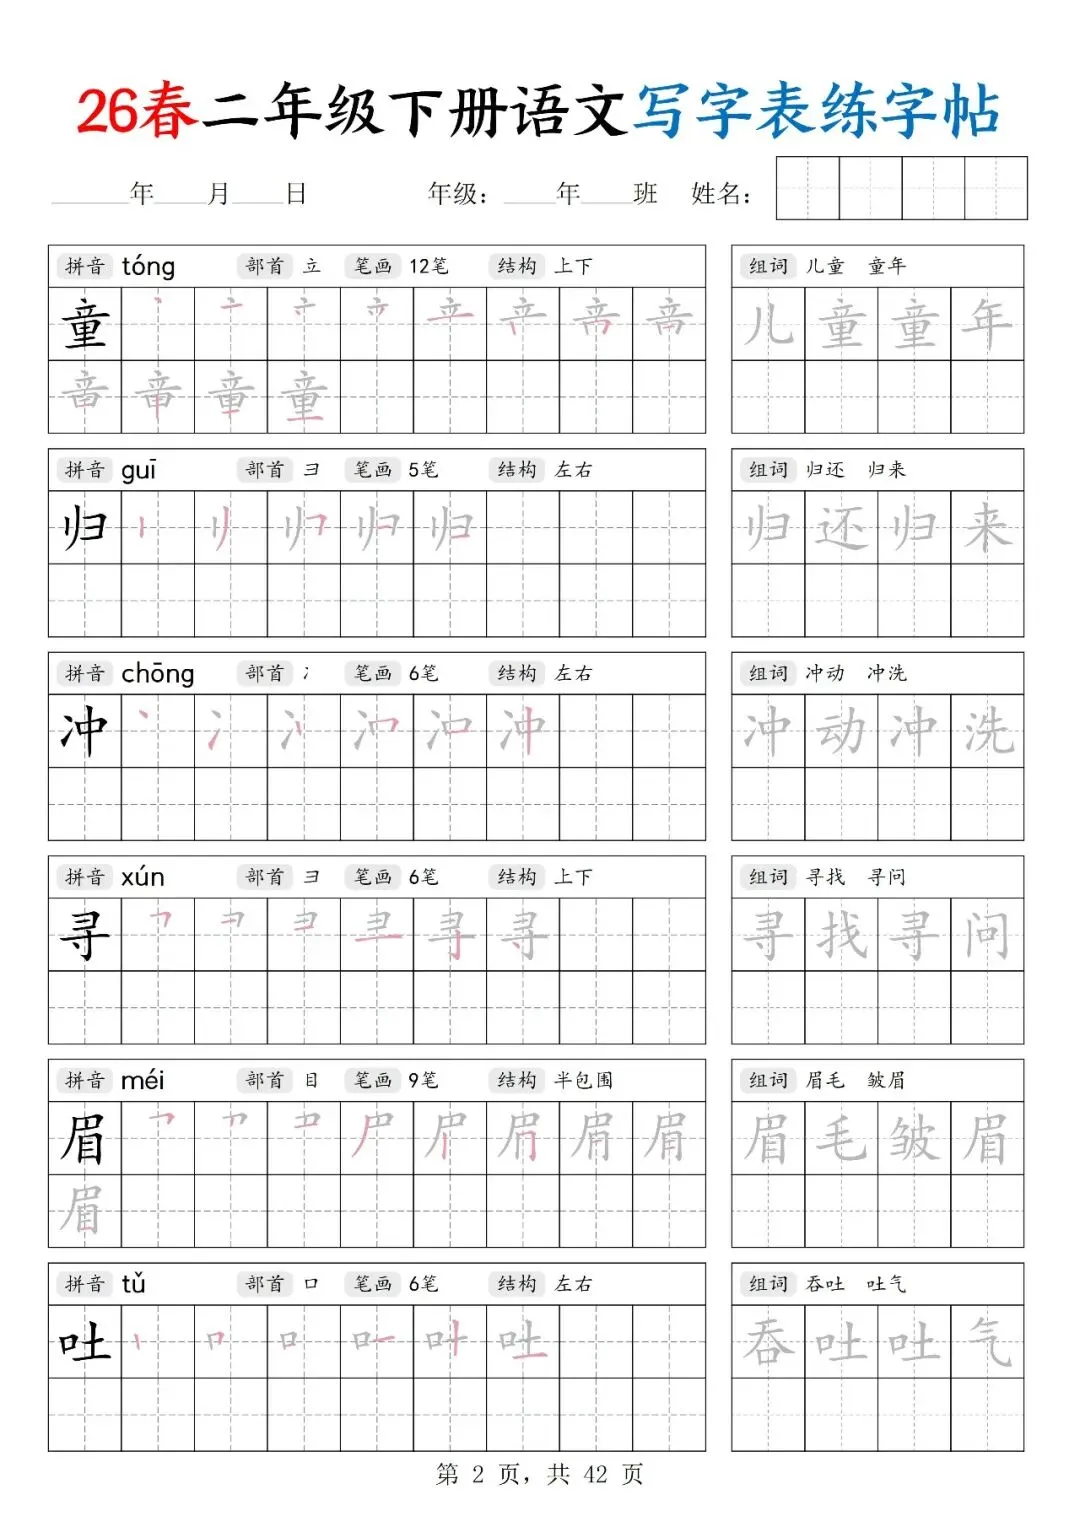 26春二年级下册语文写字表练字帖
年 月 日 年级： 年 班 姓名：
拼音 tóng 部首 立 笔画 12笔 结构 上下 组词 儿童 童年
童 儿 童 童 年
童
拼音 guī 部首 彐 笔画 5笔 结构 左右 组词 归还 归来
归 归 归 还 归 来
拼音 chōng 部首 冫 笔画 6笔 结构 左右 组词 冲动 冲洗
冲 冲 冲 动 冲 洗
拼音 xún 部首 彐 笔画 6笔 结构 上下 组词 寻找 寻问
寻 寻 寻 找 寻 问
拼音 méi 部首 目 笔画 9笔 结构 半包围 组词 眉毛 皱眉
眉 眉 毛 皱 眉
眉
拼音 tǔ 部首 口 笔画 6笔 结构 左右 组词 吞吐 吐气
吐 吐 吞 吐 吐 气
第 2 页，共 42 页